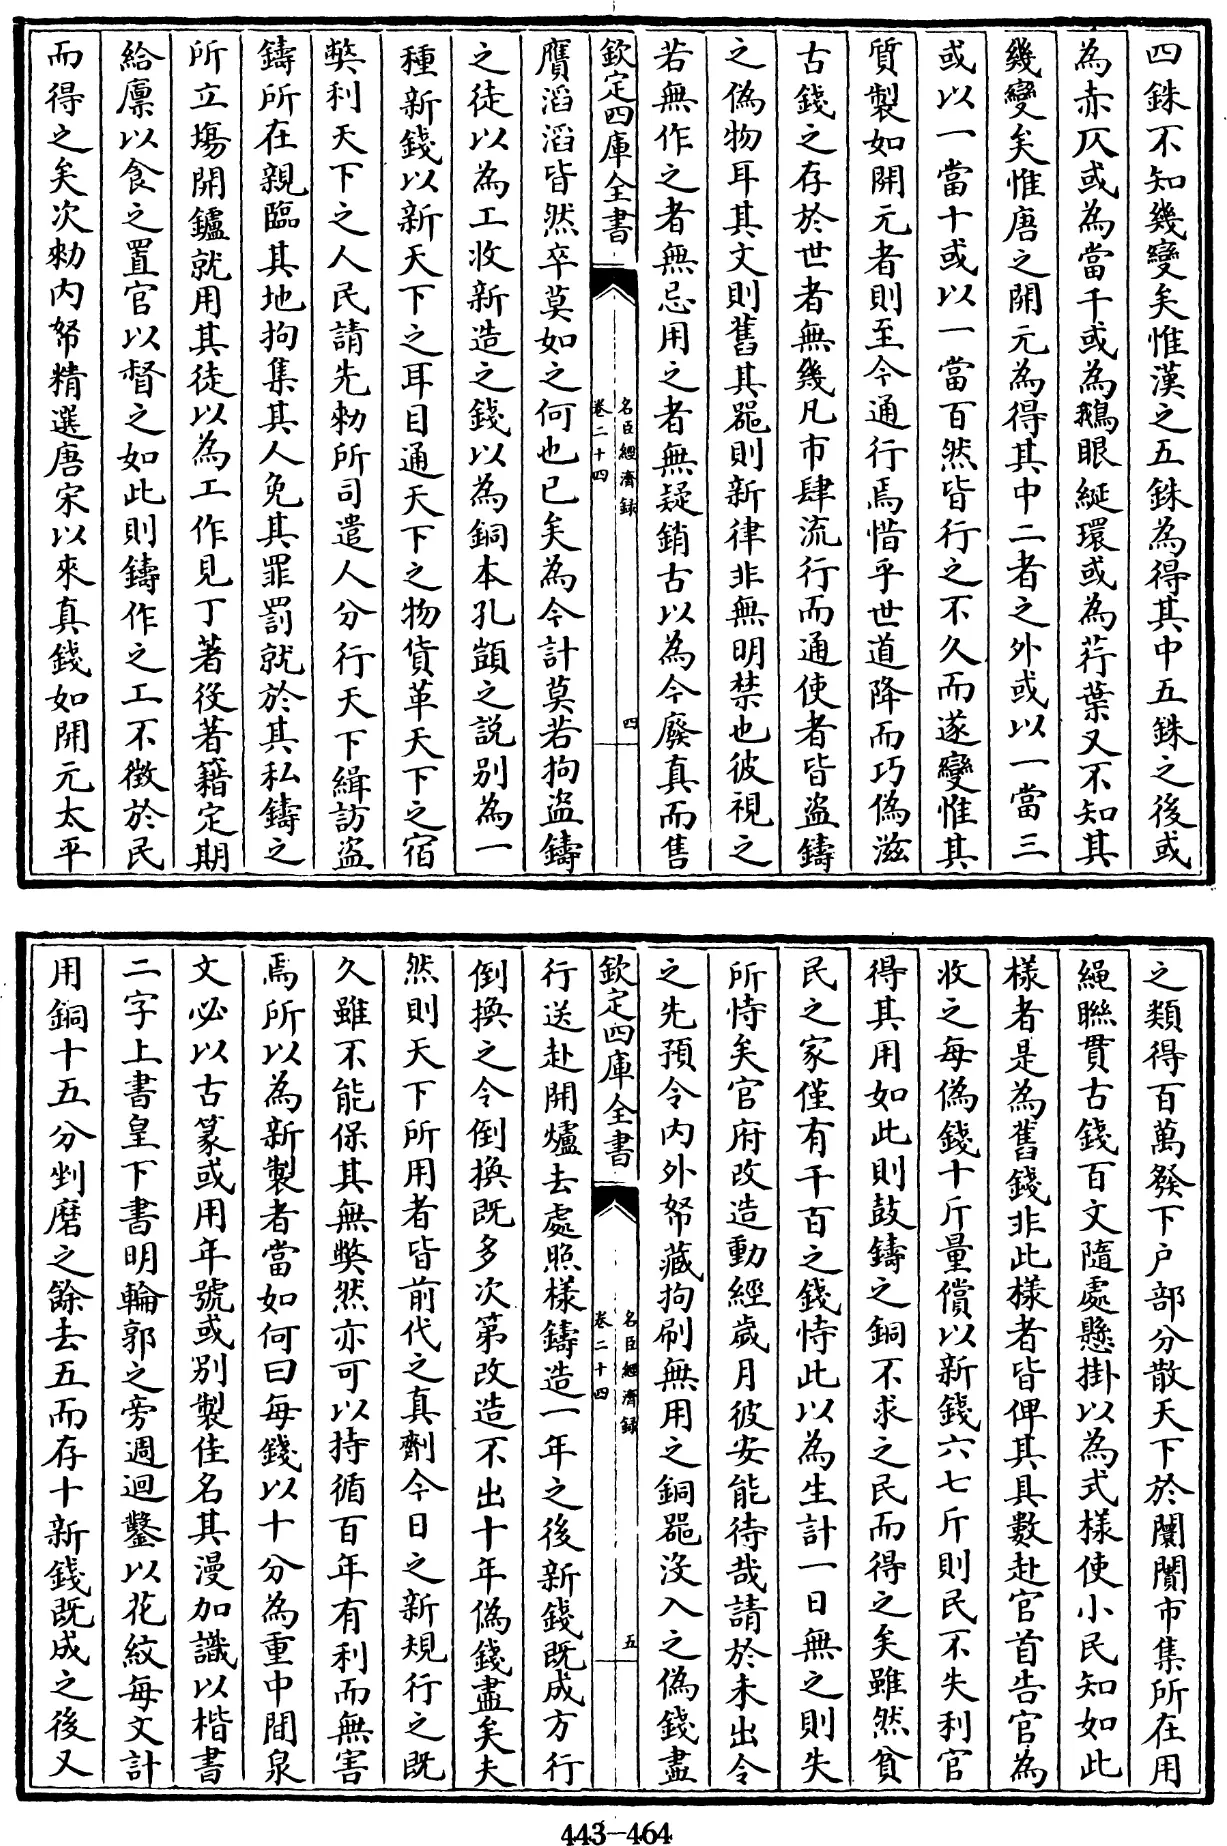 四銖不知幾變矣惟漢之五銖為得其中五銖之後或
為赤仄或為當千或為鵝眼綖環或為荇葉又不知其
幾變矣惟唐之開元為得其中二者之外或以一當三
或以一當十或以一當百然皆行之不久而遂變惟其
質製如開元者則至今通行焉惜乎世道降而巧偽滋
古錢之存於世者無幾凡市肆流行而通使者皆盜鑄
之偽物耳其文則舊其器則新律非無明禁也彼視之
若無作之者無忌用之者無疑銷古以為今廢真而售
欽定四庫全書
名臣經濟録
卷二十四
四
贋滔滔皆然卒莫如之何也已矣為今計莫若拘盜鑄
之徒以為工收新造之錢以為銅本孔顗之説别為一
種新錢以新天下之耳目通天下之物貨革天下之宿
獘利天下之人民請先勑所司遣人分行天下緝訪盜
鑄所在親臨其地拘集其人免其罪罰就於其私鑄之
所立塲開鑪就用其徒以為工作見丁著役著籍定期
給廪以食之置官以督之如此則鑄作之工不徵於民
而得之矣次勑内帑精選唐宋以來真錢如開元太平
之類得百萬發下户部分散天下於闤闠市集所在用
繩聯貫古錢百文隨處懸掛以為式樣使小民知如此
樣者是為舊錢非此樣者皆俾其具數赴官首告官為
收之每偽錢十斤量償以新錢六七斤則民不失利官
得其用如此則鼓鑄之銅不求之民而得之矣雖然貧
民之家僅有千百之錢恃此以為生計一日無之則失
所恃矣官府改造動經歲月彼安能待哉請於未出令
之先預令内外帑藏拘刷無用之銅器没入之偽錢盡
欽定四庫全書
名臣經濟録
卷二十四
五
行送赴開爐去處照樣鑄造一年之後新錢既成方行
倒換之令倒換既多次第改造不出十年偽錢盡矣夫
然則天下所用者皆前代之真劑今日之新規行之既
久雖不能保其無獘然亦可以持循百年有利而無害
焉所以為新製者當如何曰每錢以十分為重中間泉
文必以古篆或用年號或别製佳名其漫加識以楷書
二字上書皇下書明輪郭之旁週迴鏨以花紋每文計
用銅十五分剉磨之餘去五而存十新錢既成之後又
443—464